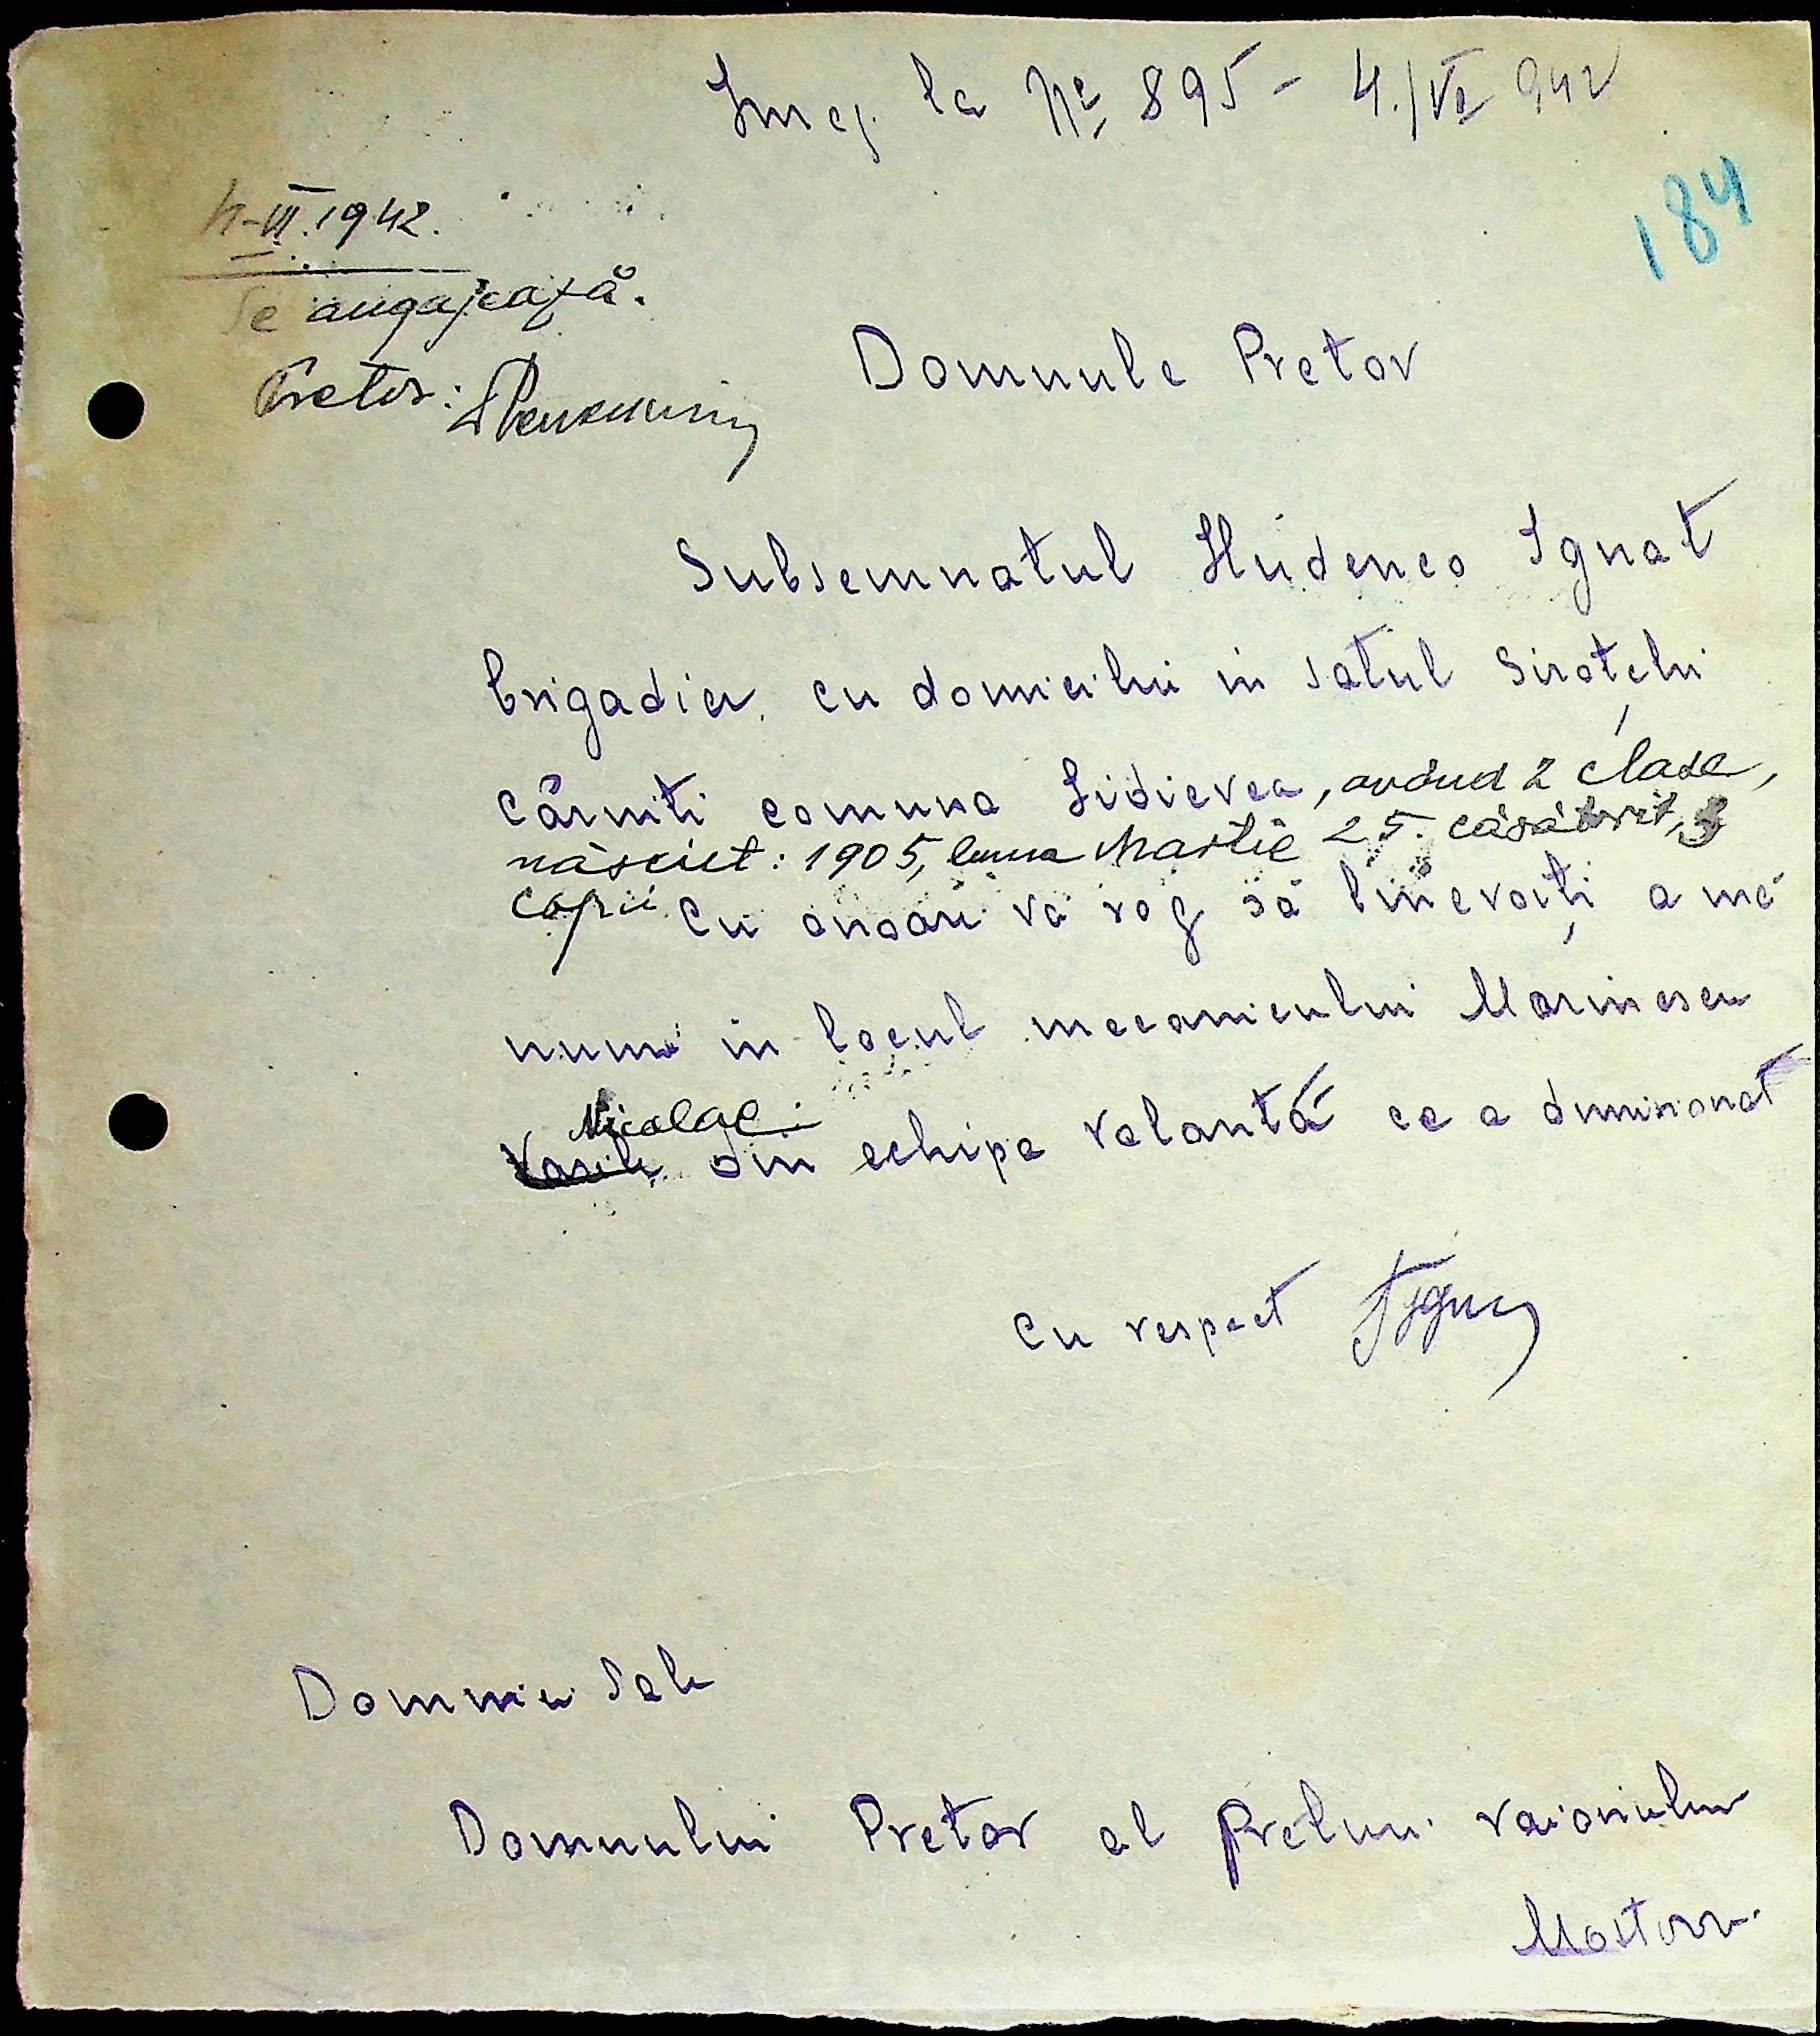 Inreg. la No 895 - 4./VI 942
184
4-VI.1942.
Se angajează.
Pretor:
Domnule Pretor
Subsemnatul Hudenco Ignat
brigadier, cu domiciliu in satul Sirotchi
cărniti comuna Lidievca, având 2 clase,
născut: 1905, luna Martie 25. căsătorit, 3
copii. Cu onoare vă rog să binevoiți a mă
numi in locul mecanicului Marinescu
Nicolae
Vasile din echipa volantă ce a dimisionat
Cu respect
Domniei Sale
Domnului Pretor al Preturii raionului
Mostovoi.